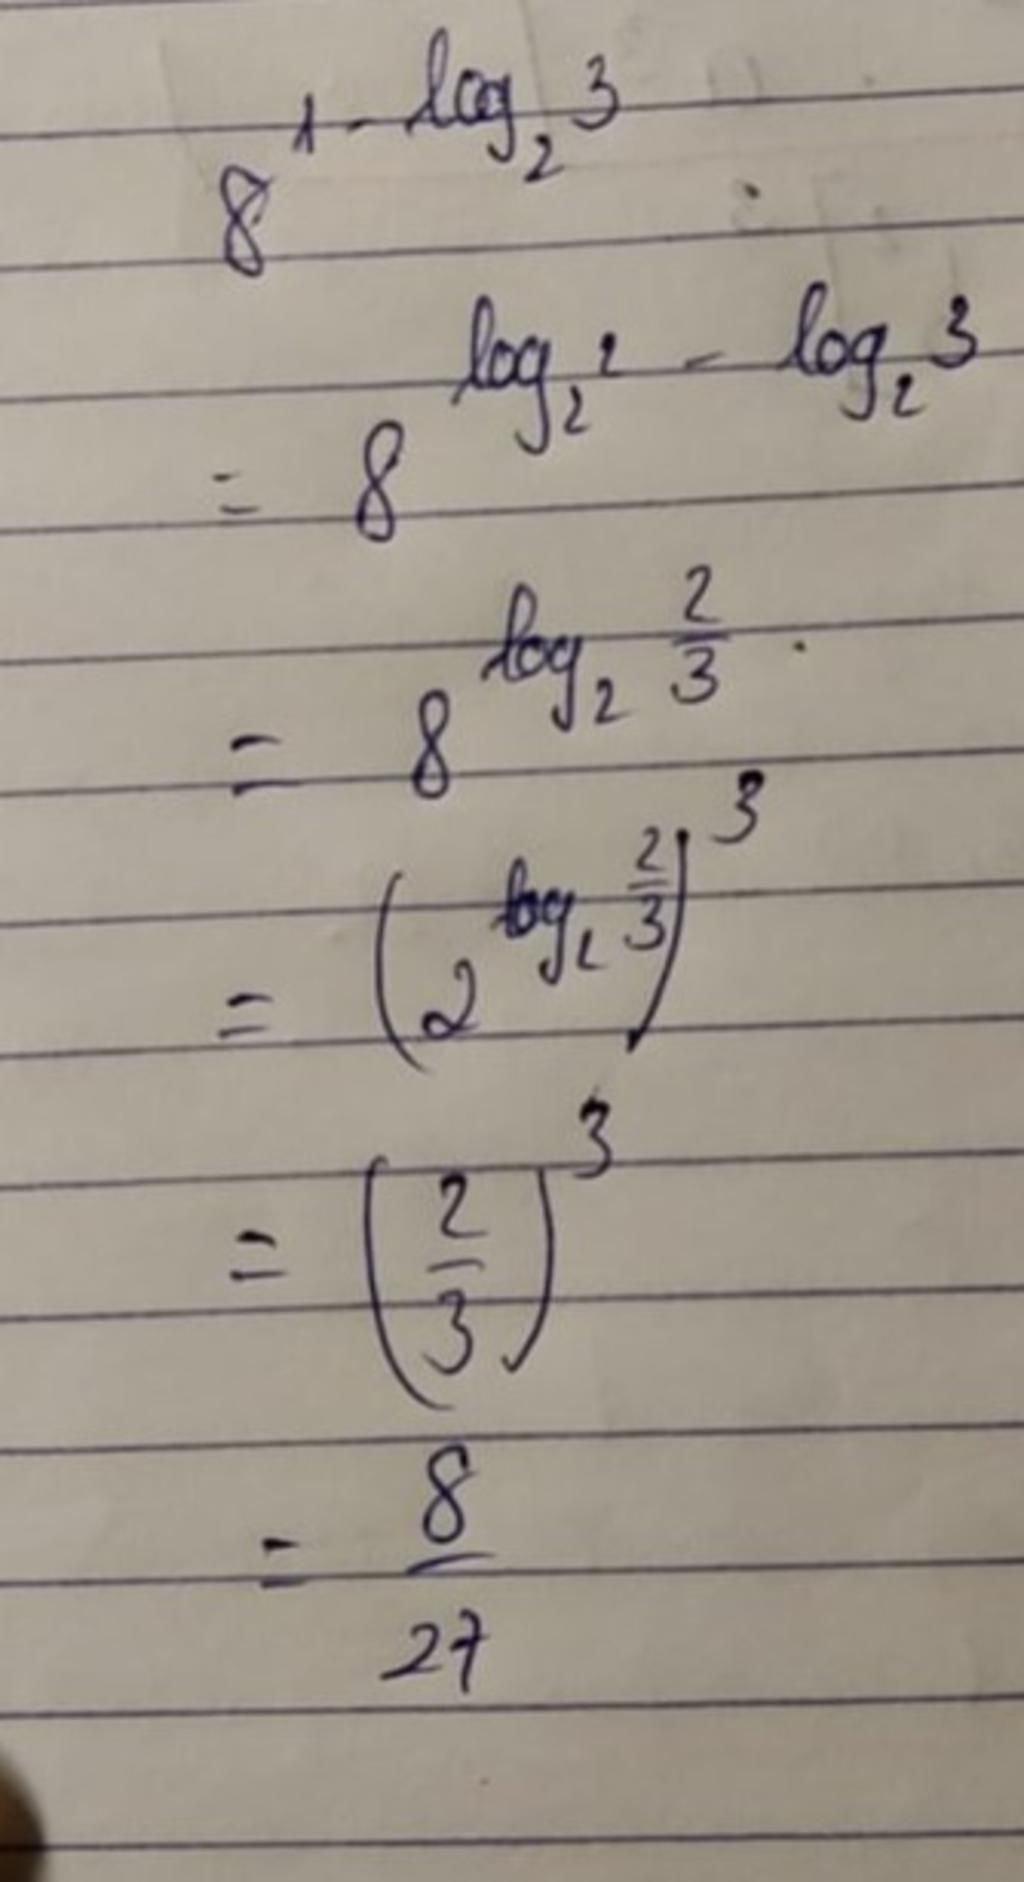 8^{1 - log_2 3}
= 8^{log_2 2 - log_2 3}
= 8^{log_2 \frac{2}{3}}
= (2^{log_2 \frac{2}{3}})^3
= (\frac{2}{3})^3
= \frac{8}{27}